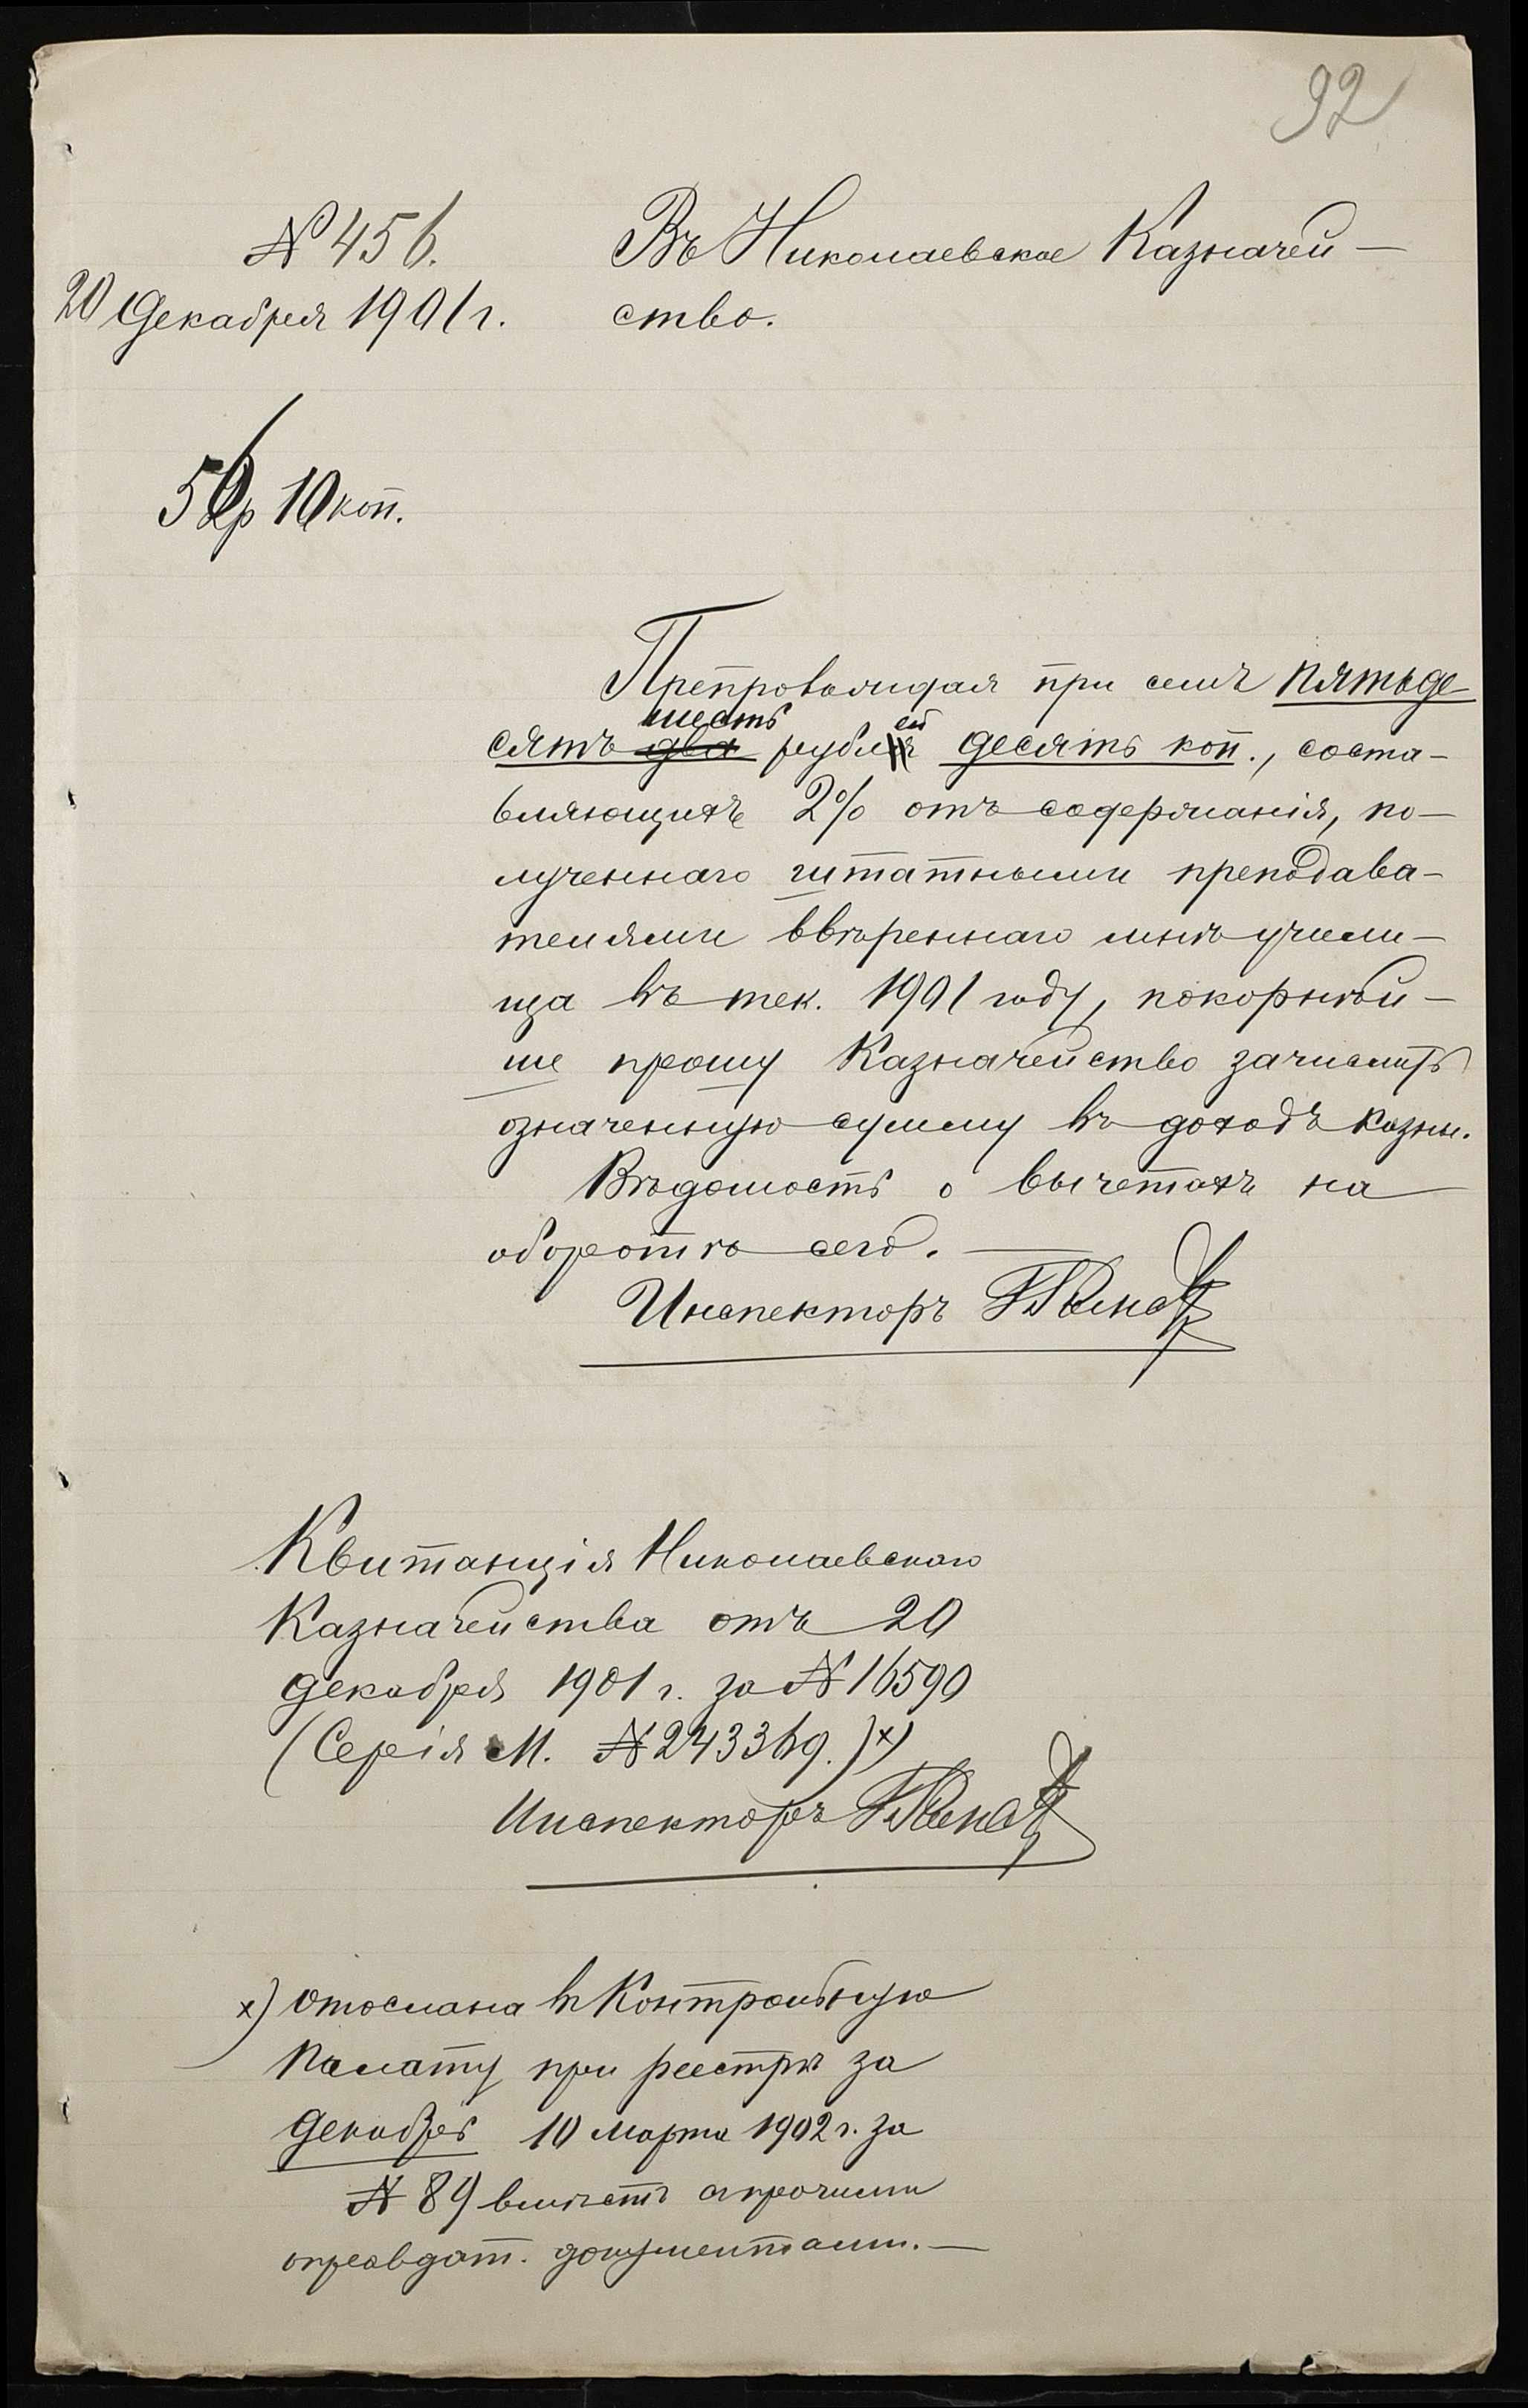 92
№ 456.
20 Декабря 1901 г.
Въ Николаевское Казначей-
ство.
56 р 10 коп.
Препровождая при семъ пятьде-
сятъ два шесть рублей десять коп., соста-
вляющихъ 2% отъ содержанія, по-
лученнаго штатными преподава-
телями ввѣреннаго мнѣ учили-
ща въ тек. 1901 году, покорнѣй-
ше прошу Казначейство зачислить
означенную сумму въ доходъ казны.
Вѣдомость о вычетахъ на
оборотѣ сего.
Инспекторъ
Квитанція Николаевскаго
Казначейства отъ 20
декабря 1901 г. за № 16590
(Серія М. № 243369.) х)
Инспекторъ
х) Отослана въ Контрольную
Палату при реестрѣ за
Декабрь 10 марта 1902 г. за
№ 89 вмѣстѣ съ прочими
оправдат. документами.